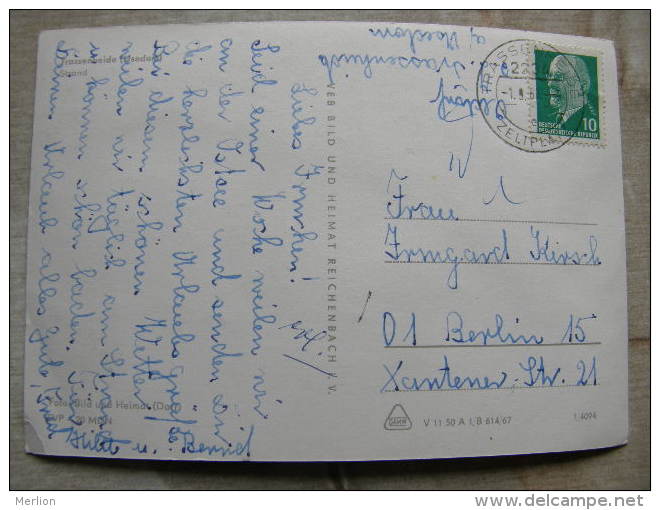 Trassenheide (Usedom)
Strand
Liebes Irmchen!
Seid einer Woche weilen wir
an der Ostsee und senden Dir
die herzlichsten Urlaubsgrüße.
Bei diesem schönen Wetter
weilen wir täglich am Strand
u. können schon baden. Für
Deinen Urlaub alles Gute, Inge
Hilde u. Bernd
Foto: Bild und Heimat (Dor
VEB BILD UND HEIMAT REICHENBACH I. V.
Trassenheide
a/ Usedom
TRASSEN
222
-1.
ZELTPLA
DEUTSCHE
DEMOKRATISCHE REPUBLIK
10
Frau
Irmgard Kirsch
01 Berlin 15
Xantener-Str. 21
V 11 50 A 1, B 614/67
1.4094
Merlion
www.delcampe.net